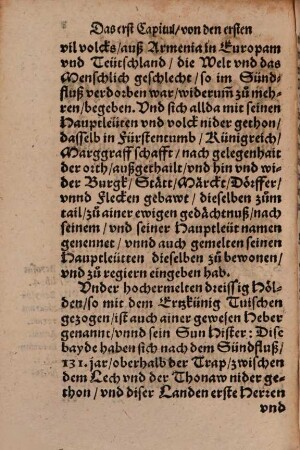 Das erst Capitul/ von den ersten
vil volcks/ auß Armenia in Europam
vnd Teütschland/ die Welt vnd das
Menschlich geschlecht/ so im Sünd-
fluß verdorben war/ widerum̃ zů meh-
ren/ begeben. Vnd sich allda mit seinen
Hauptleüten vnd volck nider gethon/
dasselb in Fürstentumb/ Künigreich/
Marggraff schafft/ nach gelegenhait
der orth/ außgethailt/ vnd hin vnd wi-
der Burgk/ Stätt/ Märckt/ Dörffer/
vnnd Flecken gebawt/ dieselben zům
tail/ zů ainer ewigen gedächtnuß/ nach
seinem/ vnd seiner Hauptleür namen
genennet/ vnnd auch gemelten seinen
Hauptleütten dieselben zů bewonen/
vnd zů regiern eingeben hab.
Vnder hochermelten dreissig Höl-
den/ so mit dem Ertzkünig Tuischen
gezogen/ ist auch ainer gewesen Heber
genannt/ vnnd sein Sun Hister: Dise
bayde haben sich nach dem Sündfluß/
131. jar/ oberhalb der Trap/ zwischen
dem Lech vnd der Thonaw nider ge-
thon/ vnd diser Landen erste Herren
vnd